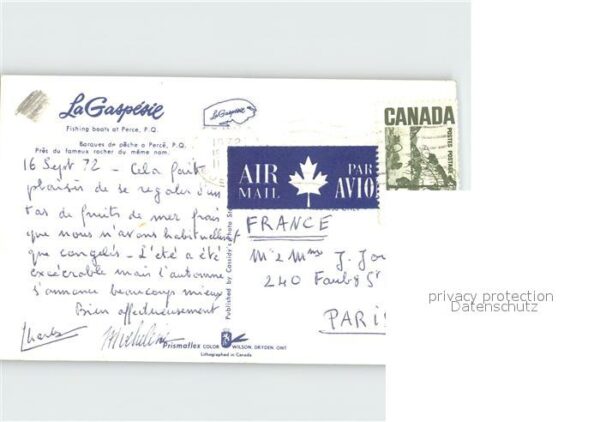 La Gaspésie
Fishing boats at Perce, P.Q.
Barques de pêche a Percé, P.Q.
Près du fameux rocher du même nom.
La Gaspésie
1972
CANADA
POSTES POSTAGE
AIR MAIL
PAR AVION
16 Sept 72 - Cela fait
plaisir de se régaler d'un
tas de fruits de mer frais
que nous n'avons habituellement
que congelés - L'été a été
exécrable mais l'automne
s'annonce beaucoup mieux
Bien affectueusement
Charles Micheline
Published by Cassidy's Photo
FRANCE
Mr & Mme J.
240 Faubg St
PARIS
Prismaflex COLOR WILSON, DRYDEN, ONT
Lithographed in Canada
privacy protection
Datenschutz